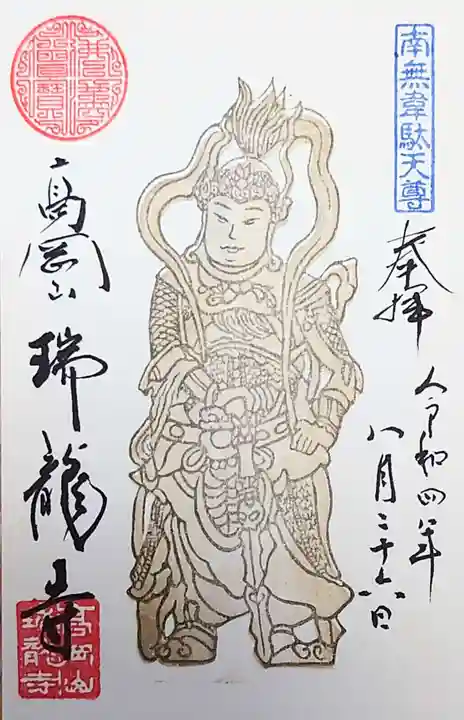 南無韋駄天尊
奉拝
令和四年
八月二十六日
高岡山瑞龍寺
高岡山
瑞龍寺